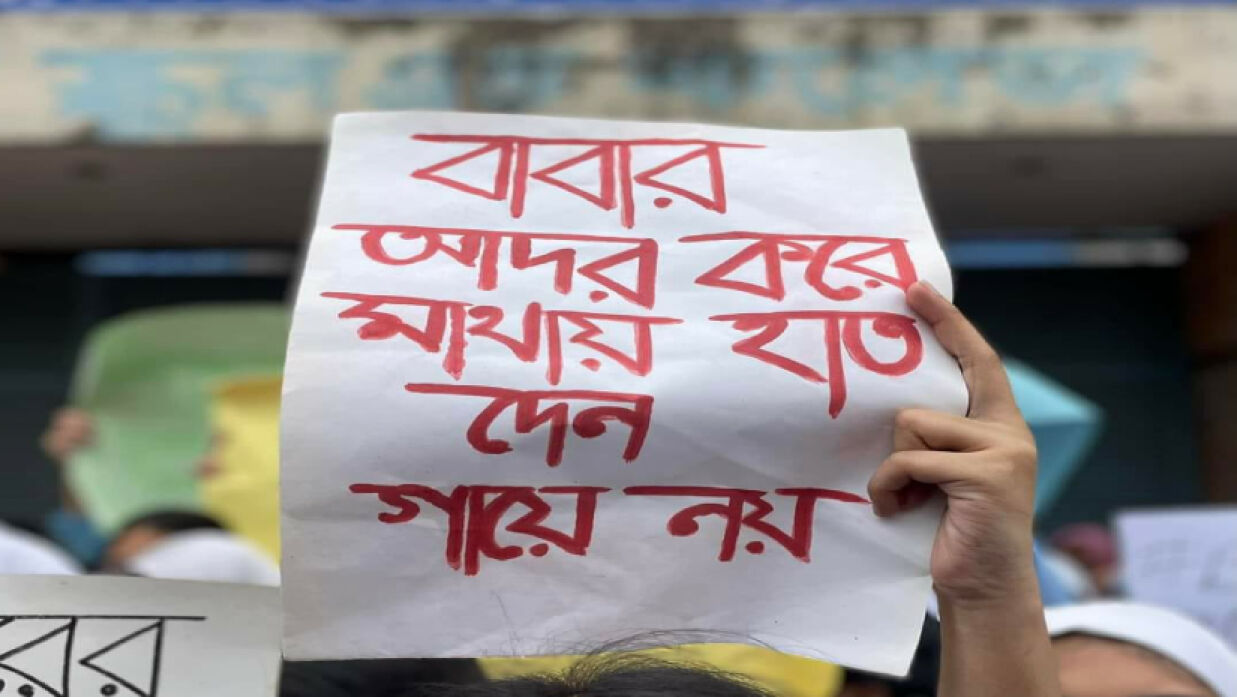 বাবার
আদর করে
মাথায় হাত
দেন
গায়ে নয়